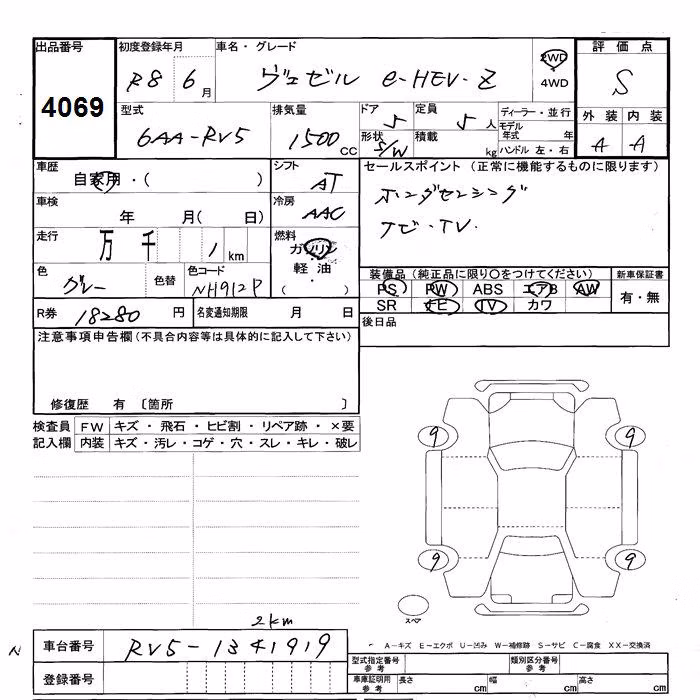 出品番号
4069
初度登録年月
R8 6月
車名・グレード
ヴェゼル e-HEV-Z
2WD
4WD
評価点
S
外装 内装
A A
型式
6AA-RV5
排気量
1500cc
ドア
5
形状
S/W
定員
5人
積載
kg
ディーラー・並行
モデル年式 年
ハンドル 左・右
車歴
自家用・( )
シフト
AT
セールスポイント (正常に機能するものに限ります)
ホンダセンシング
ナビ・TV.
車検
年 月( 日)
冷房
AAC
走行
万 千 1km
燃料
ガソリン
軽油
( )
色
グレー
色替
色コード
NH912P
装備品(純正品に限り○をつけてください)
PS PW ABS エアB AW
SR ナビ TV カワ
新車保証書
有・無
R券 18280円
名変通知期限 月 日
後日品
注意事項申告欄(不具合内容等は具体的に記入して下さい)
修復歴 有 〔箇所 〕
検査員記入欄
FW キズ・飛石・ヒビ割・リペア跡・×要
内装 キズ・汚レ・コゲ・穴・スレ・キレ・破レ
9
9
9
9
スペア
2km
N
車台番号
RV5-1341919
登録番号
A－キズ E－エクボ U－凹み W－補修跡 S－サビ C－腐食 XX－交換済
型式指定番号 参考
類別区分番号 参考
車庫証明用 参考
長さ cm
幅 cm
高さ cm